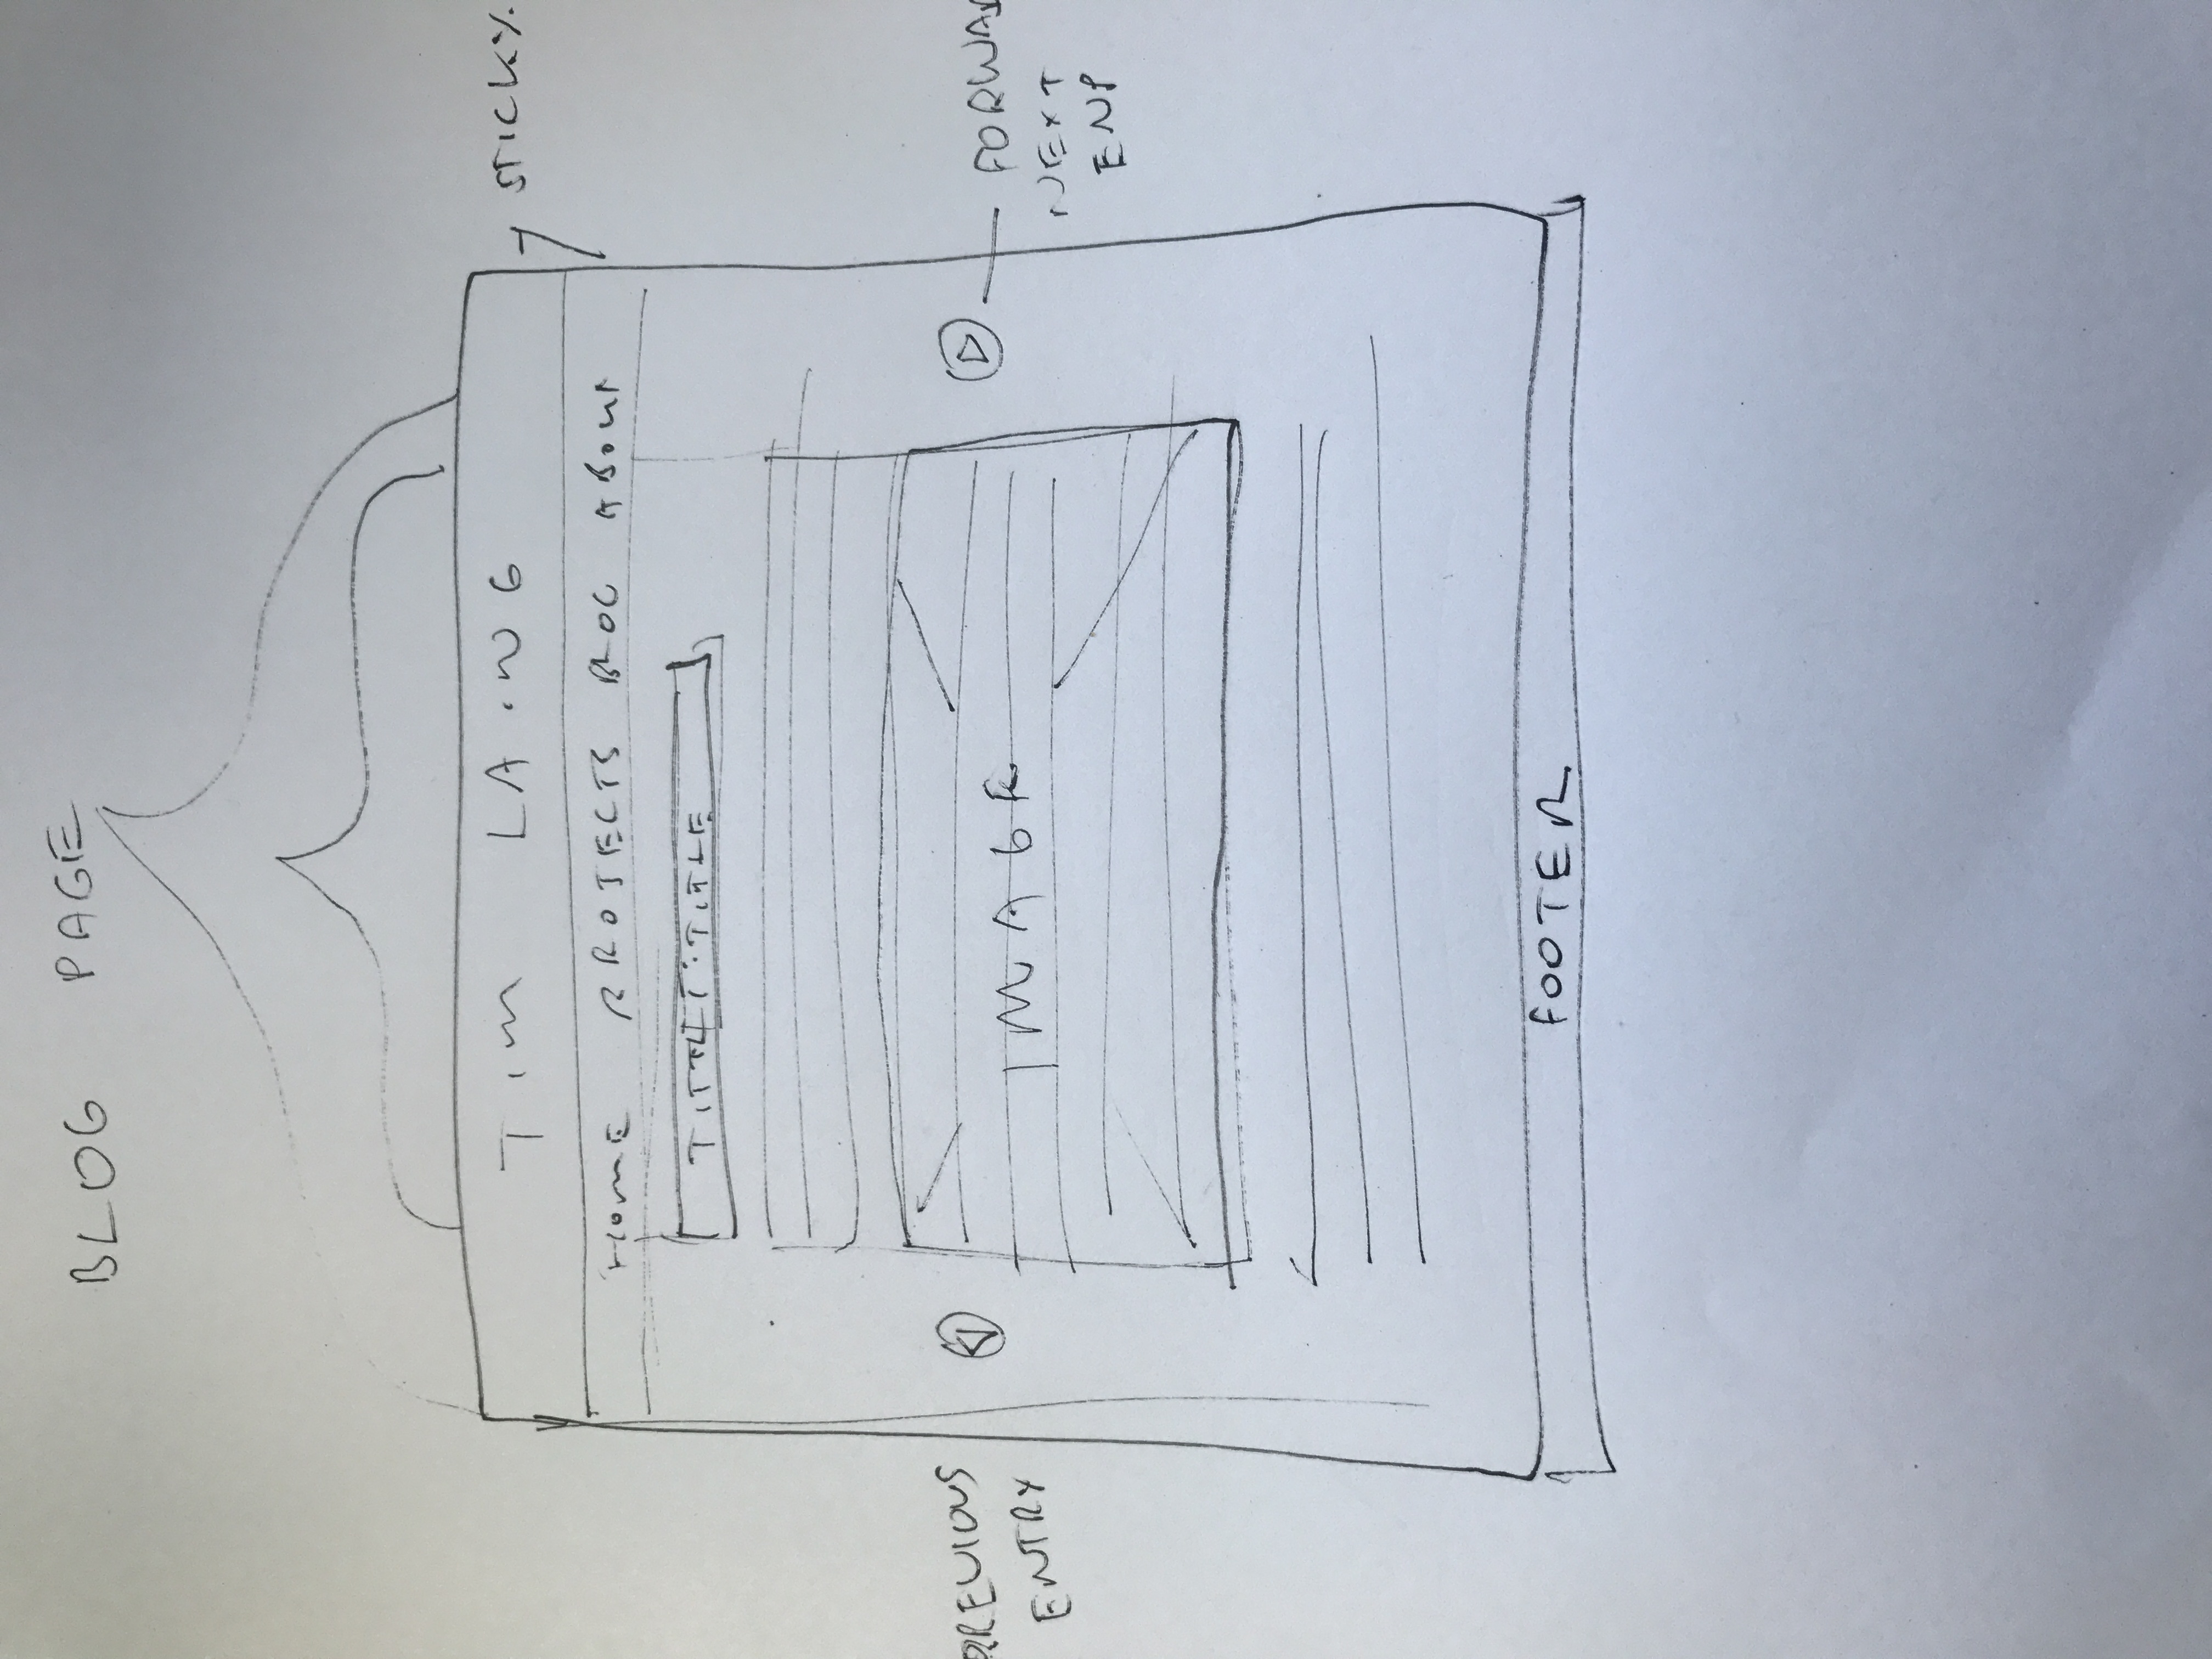 BLOG PAGE
TIM LAING
STICKY.
HOME PROJECTS BLOG ABOUT
TITLE
IMAGE
PREVIOUS
ENTRY
FORWAD
NEXT
FOOTER